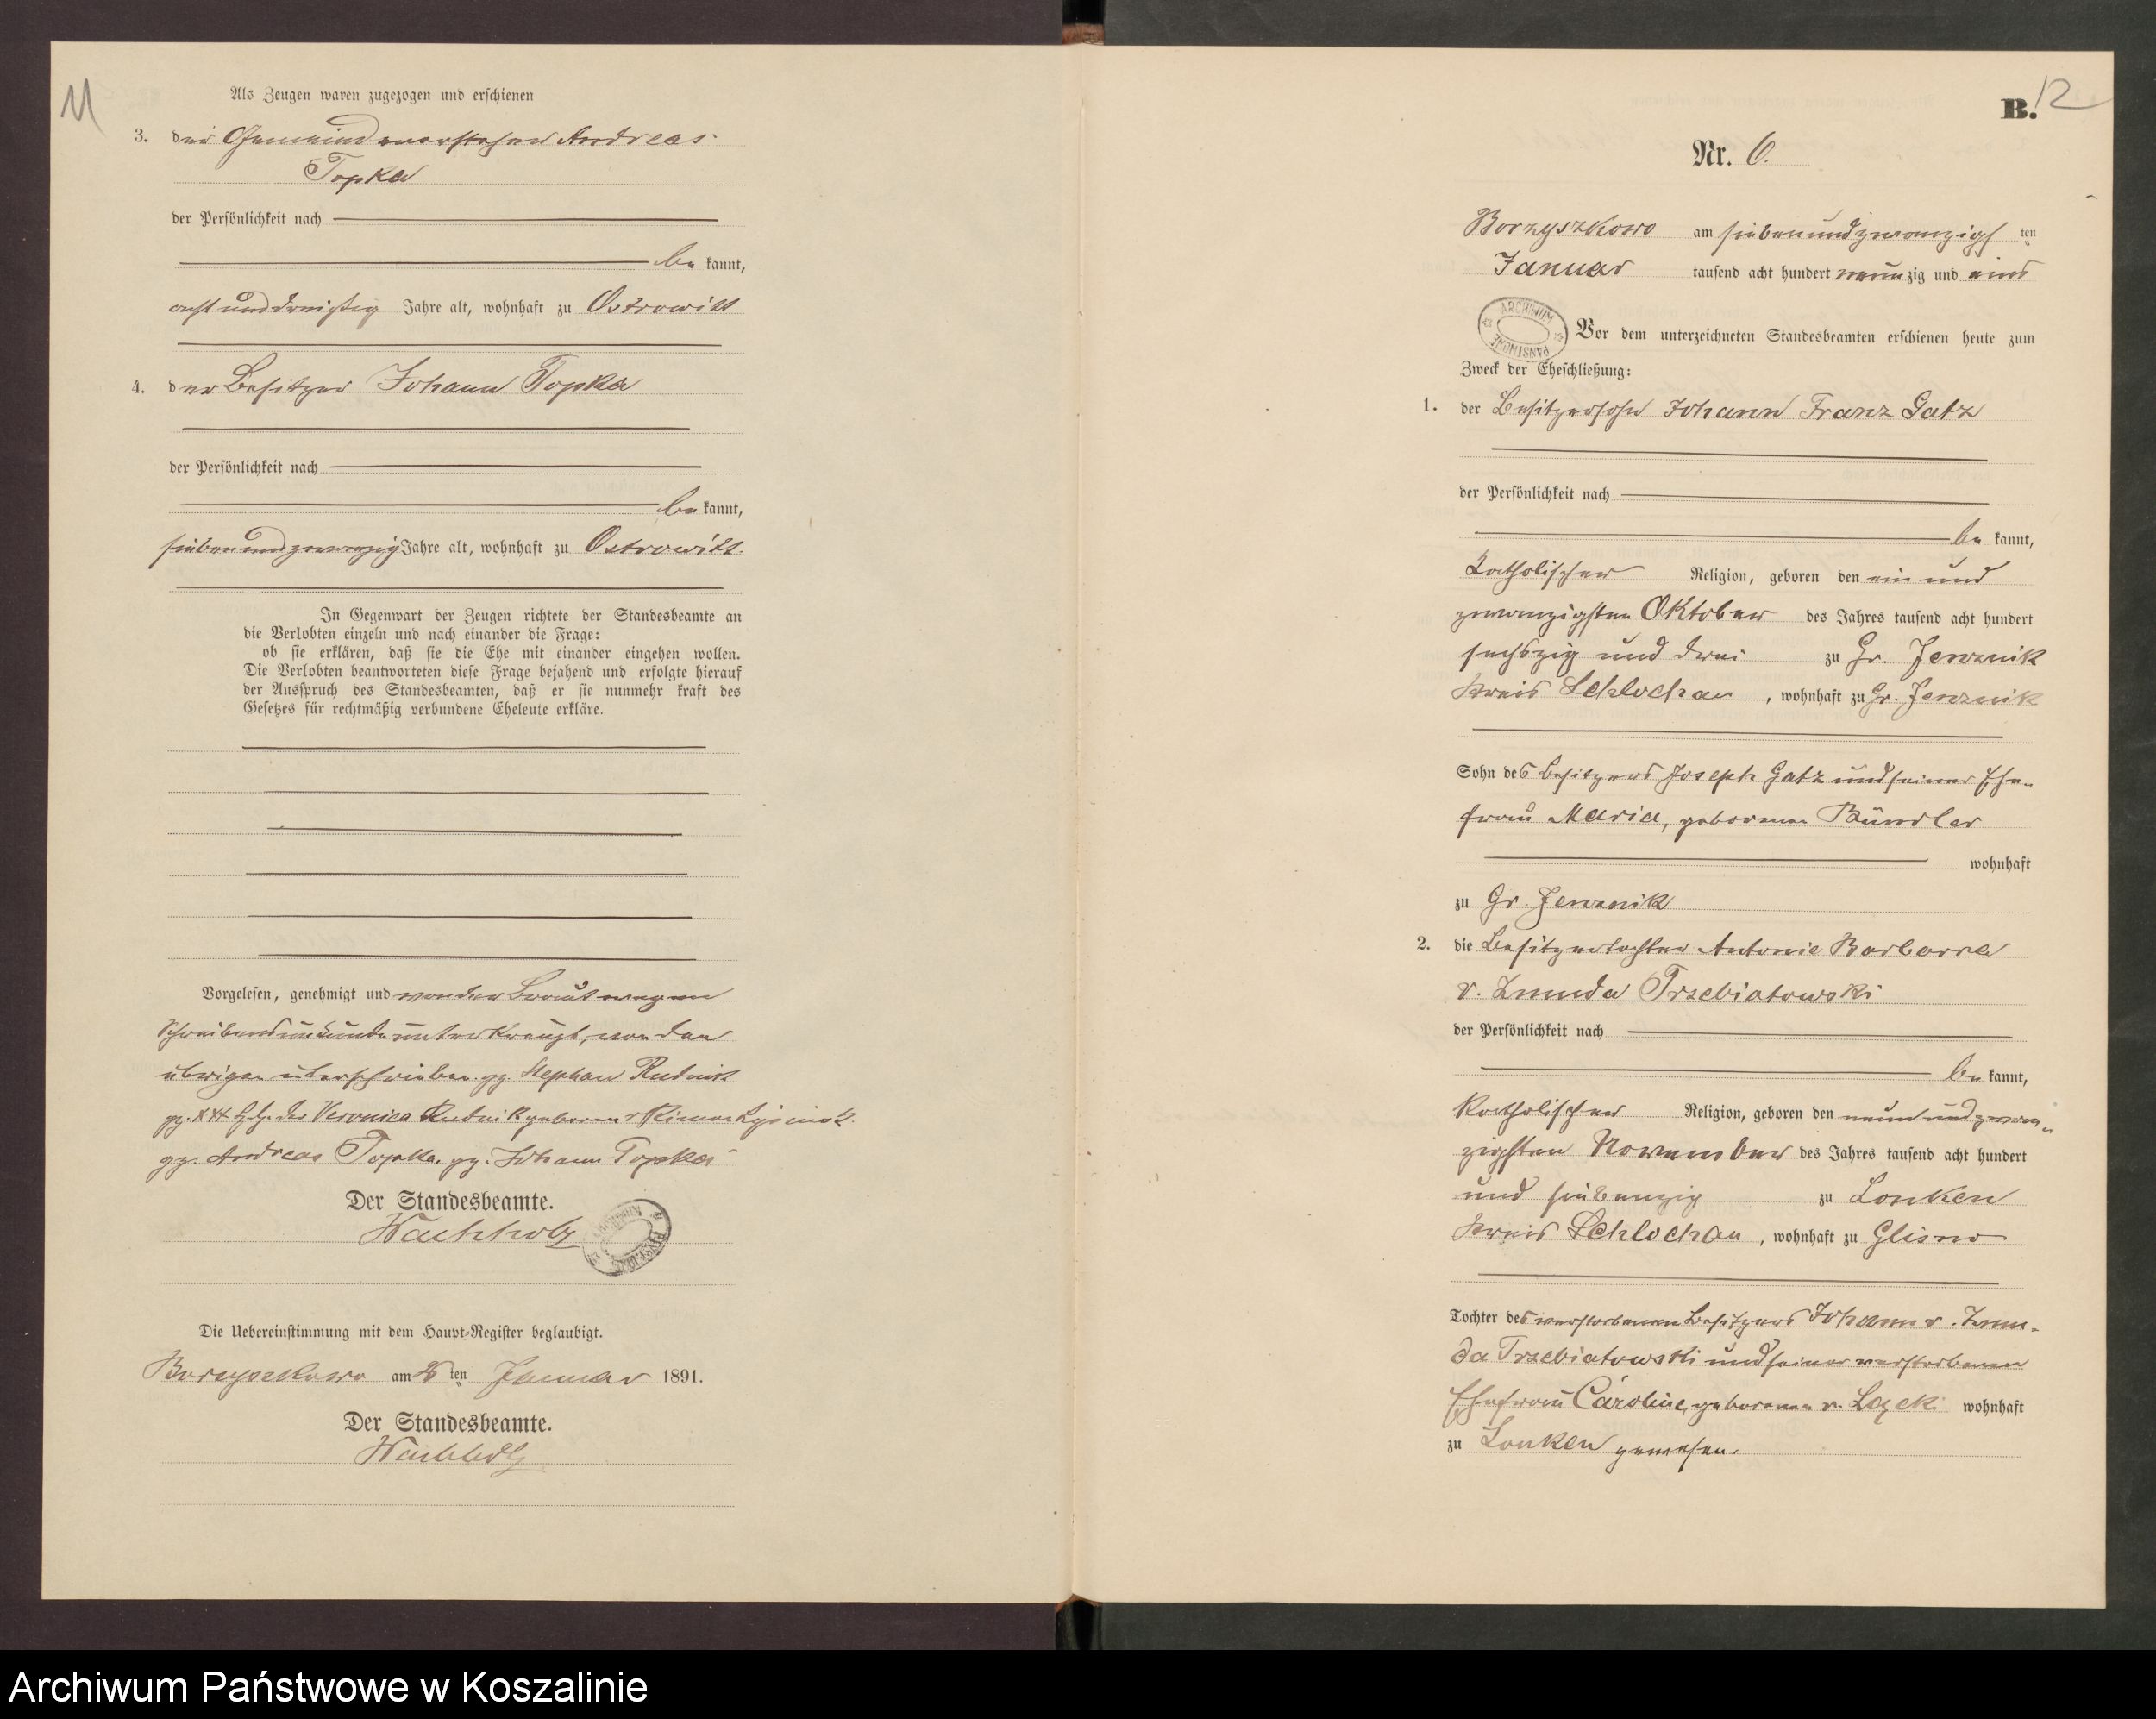 11
Als Zeugen waren zugezogen und erschienen
3. der Gemeindevorsteher Andreas
Topka
der Persönlichkeit nach
be kannt,
acht und dreißig Jahre alt, wohnhaft zu Ostrowitt
4. der Besitzer Johann Topka
der Persönlichkeit nach
be kannt,
sieben und zwanzig Jahre alt, wohnhaft zu Ostrowitt.
In Gegenwart der Zeugen richtete der Standesbeamte an
die Verlobten einzeln und nach einander die Frage:
ob sie erklären, daß sie die Ehe mit einander eingehen wollen.
Die Verlobten beantworteten diese Frage bejahend und erfolgte hierauf
der Ausspruch des Standesbeamten, daß er sie nunmehr kraft des
Gesetzes für rechtmäßig verbundene Eheleute erkläre.
Vorgelesen, genehmigt und von der Braut wegen
Schreibensunkunde unterkreuzt, von den
übrigen unterschrieben. gz. Stephan Rudnik
gz. XXX Hdz. der Veronica Rudnik geborene
gz. Andreas Topka. gz. Johann Topka
Der Standesbeamte.
Wachholz
ARCHIWUM PAŃSTWOWE
Die Uebereinstimmung mit dem Haupt-Register beglaubigt.
Borzyszkowo am 26 ten Januar 1891.
Der Standesbeamte.
Wachholz
B. 12
Nr. 6.
Borzyszkowo am siebenundzwanzigs ten
Januar tausend acht hundert neun zig und eins
ARCHIWUM PAŃSTWOWE
Vor dem unterzeichneten Standesbeamten erschienen heute zum
Zweck der Eheschließung:
1. der Besitzersohn Johann Franz Gatz
der Persönlichkeit nach
be kannt,
katholischer Religion, geboren den ein und
zwanzigsten Oktober des Jahres tausend acht hundert
sechszig und drei zu Gr. Jenznik
Kreis Schlochau, wohnhaft zu Gr. Jenznik
Sohn des Besitzers Joseph Gatz und seiner Ehe-
frau Maria, geborenen Bündler
wohnhaft
zu Gr. Jenznik
2. die Besitzertochter Antonie Barbara
v. Zmuda Trzebiatowski
der Persönlichkeit nach
be kannt,
katholischer Religion, geboren den neun und zwan-
zigsten November des Jahres tausend acht hundert
und siebenzig zu Lonken
Kreis Schlochau, wohnhaft zu Glisno
Tochter des verstorbenen Besitzers Johann v. Zmu-
da Trzebiatowski und seiner verstorbenen
Ehefrau Caroline, geborenen v. wohnhaft
zu Lonken gewesen.
Archiwum Państwowe w Koszalinie